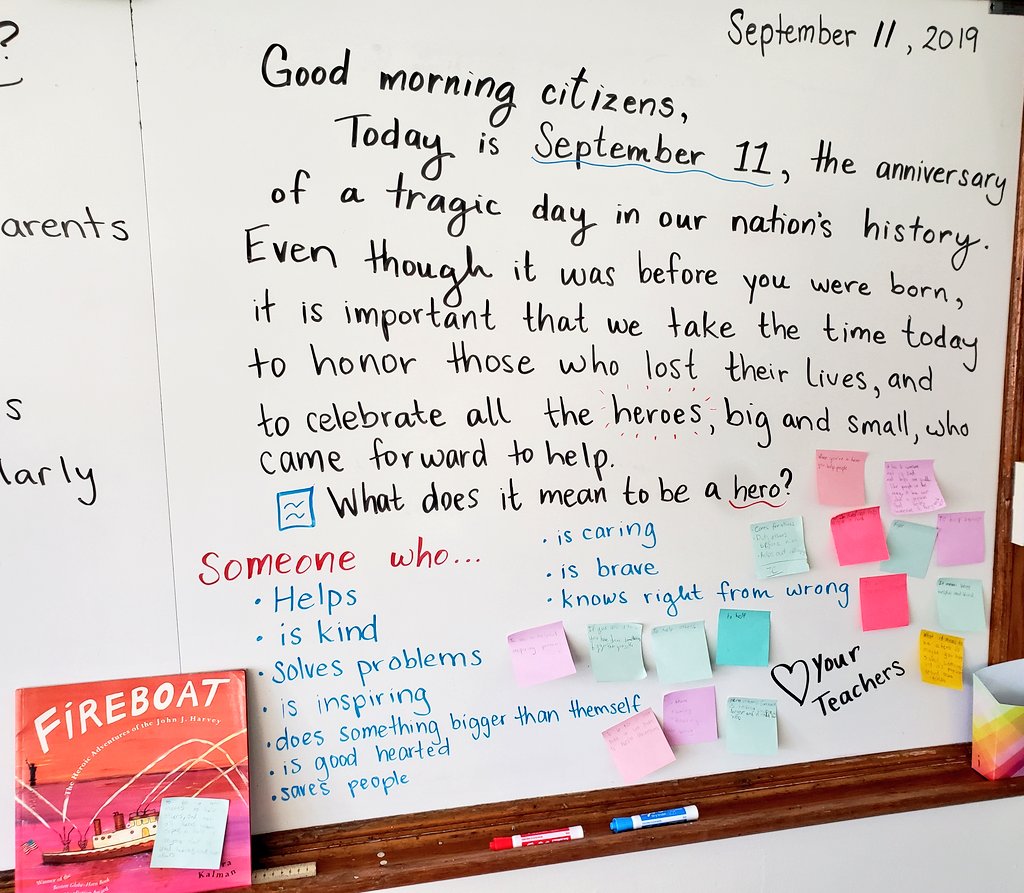 ?
arents
s
larly
September 11, 2019
Good morning citizens,
Today is September 11, the anniversary
of a tragic day in our nation's history.
Even though it was before you were born,
it is important that we take the time today
to honor those who lost their lives, and
to celebrate all the heroes, big and small, who
came forward to help.
What does it mean to be a hero?
Someone who...
• Helps
• is kind
• solves problems
• is inspiring
• does something bigger than themself
• is good hearted
• saves people
• is caring
• is brave
• knows right from wrong
to help
♡ Your
Teachers
FIREBOAT
The Heroic Adventures of the John J. Harvey
Kalman